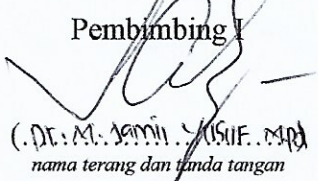 Pembimbing I
(.Dr..M..Jamil..YUSUF..M.pd)
nama terang dan tanda tangan